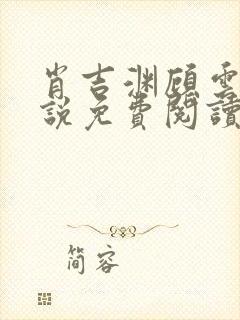 肖吉渊顾雲
說免費閱讀
简容